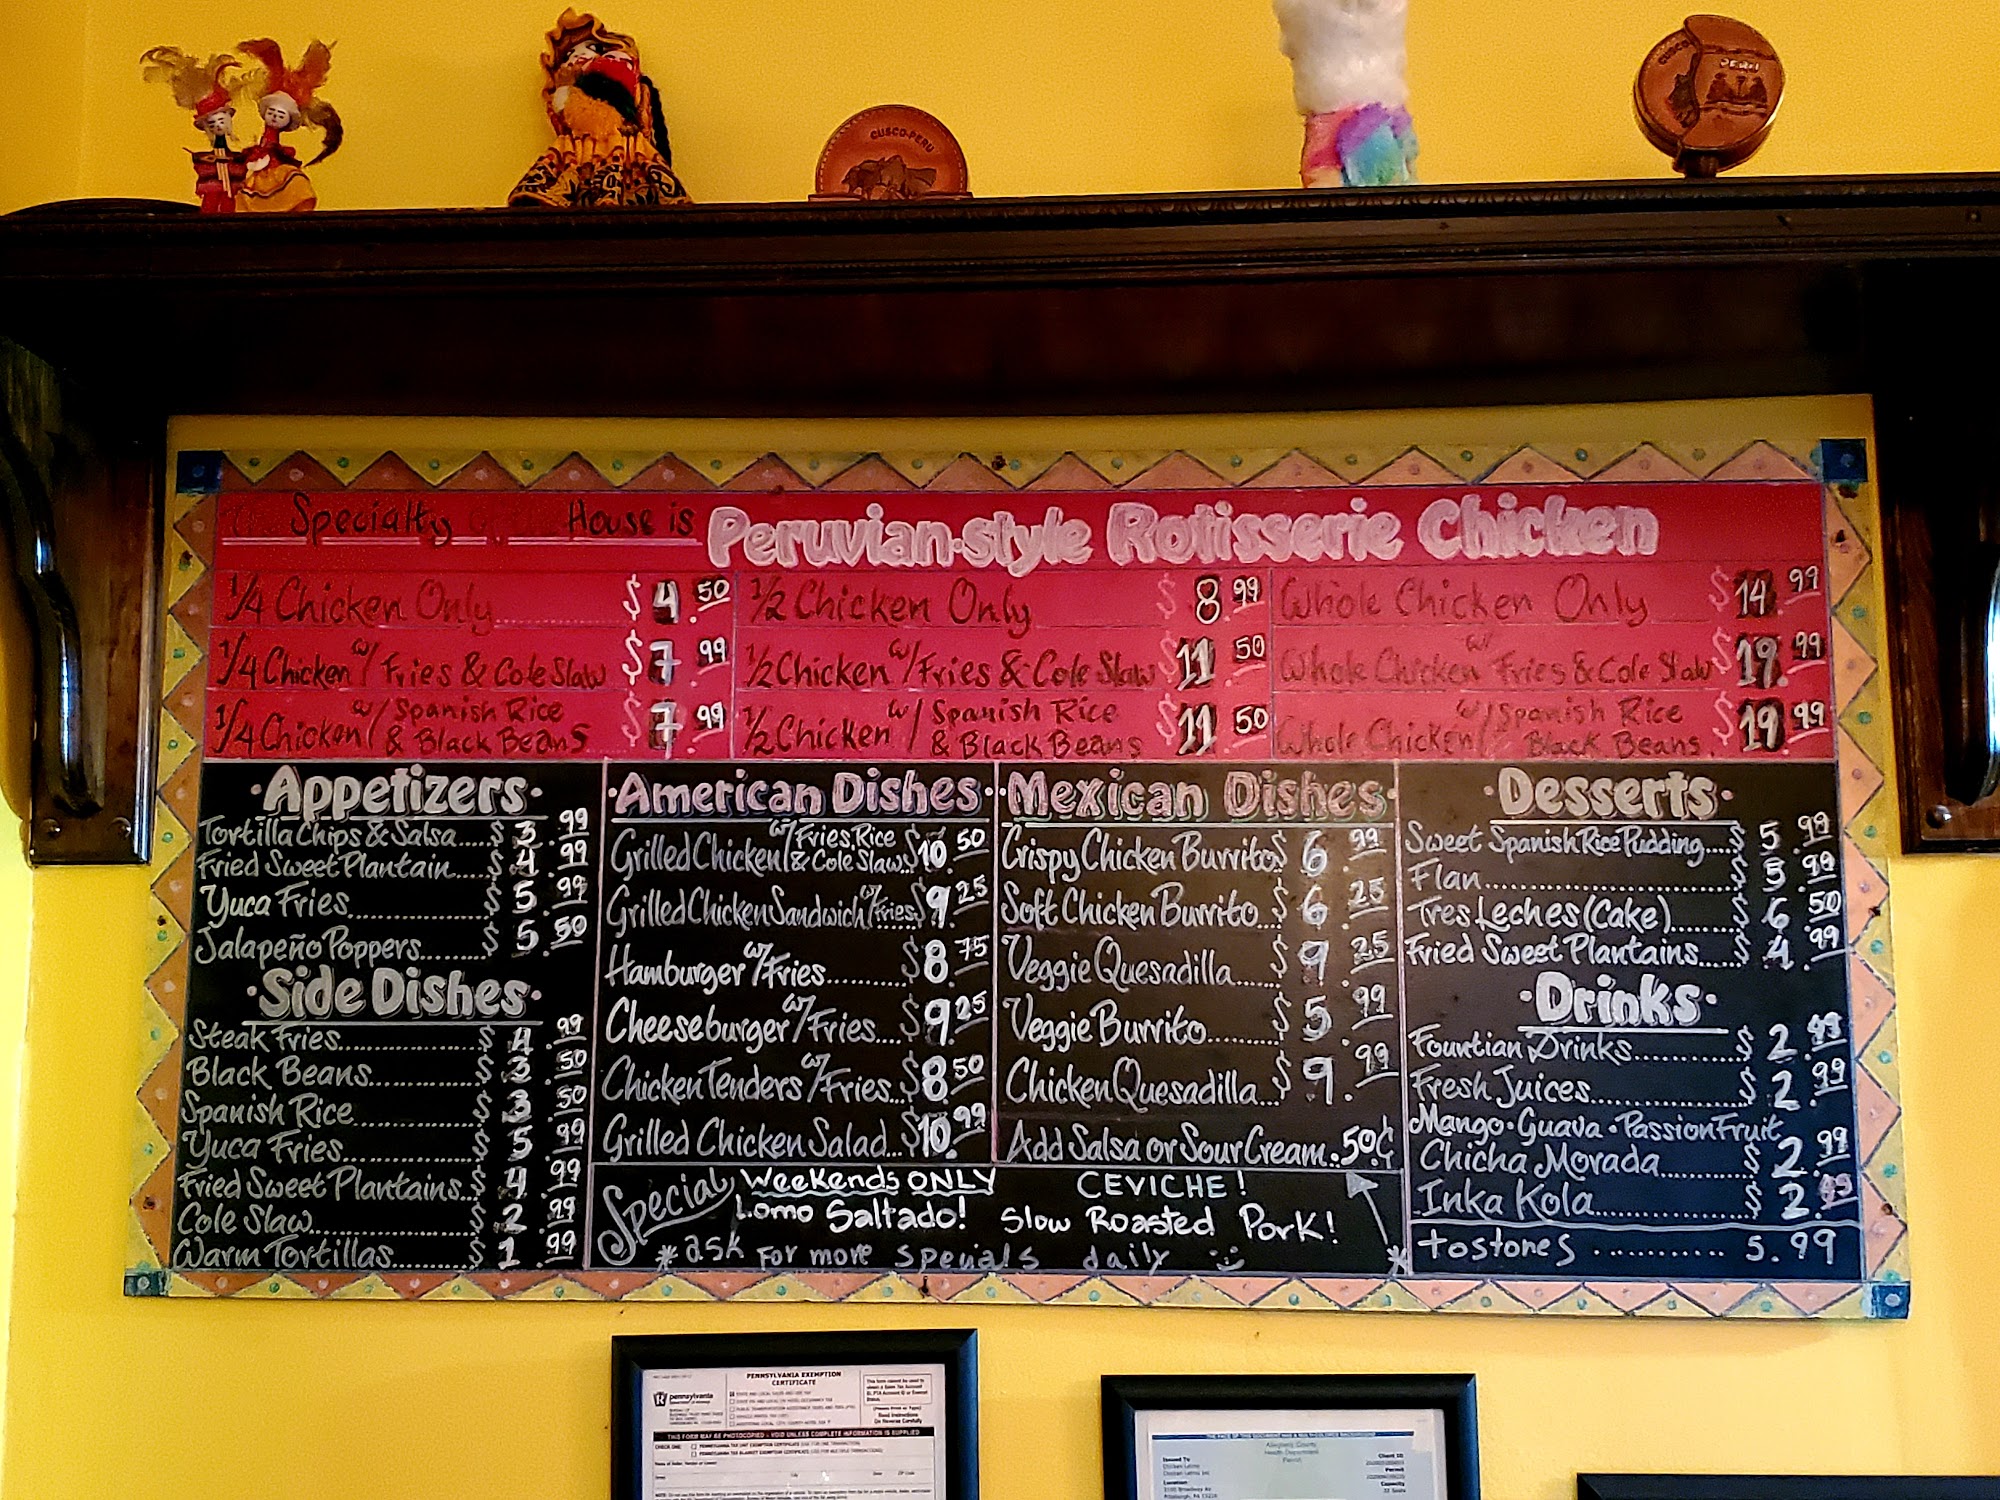 CUSCO-PERU
CUSCO PERU
The Specialty of the House is Peruvian-style Rotisserie Chicken
1/4 Chicken Only $4.50
1/4 Chicken w/ Fries & Cole Slaw $7.99
1/4 Chicken w/ Spanish Rice & Black Beans $7.99
1/2 Chicken Only $8.99
1/2 Chicken w/ Fries & Cole Slaw $11.50
1/2 Chicken w/ Spanish Rice & Black Beans $11.50
Whole Chicken Only $14.99
Whole Chicken w/ Fries & Cole Slaw $19.99
Whole Chicken w/ Spanish Rice Black Beans. $19.99
·Appetizers·
Tortilla Chips & Salsa.....$3.99
Fried Sweet Plantain.....$4.99
Yuca Fries..........$5.99
Jalapeño Poppers.......$5.50
·Side Dishes·
Steak Fries..........$4.99
Black Beans..........$3.50
Spanish Rice..........$3.50
Yuca Fries..........$5.99
Fried Sweet Plantains...$4.99
Cole Slaw..........$2.99
Warm Tortillas.......$1.99
·American Dishes·
Grilled Chicken w/ Fries, Rice & Cole Slaw...$10.50
Grilled Chicken Sandwich w/ Fries.$9.25
Hamburger w/ Fries.......$8.75
Cheeseburger w/ Fries....$9.25
Chicken Tenders w/ Fries...$8.50
Grilled Chicken Salad...$10.99
·Mexican Dishes·
Crispy Chicken Burrito $6.99
Soft Chicken Burrito...$6.25
Veggie Quesadilla....$9.25
Veggie Burrito..........$5.99
Chicken Quesadilla...$9.99
Add Salsa or Sour Cream..50¢
·Desserts·
Sweet Spanish Rice Pudding....$5.99
Flan..........$5.99
Tres Leches (Cake).......$6.50
Fried Sweet Plantains.....$4.99
·Drinks·
Fountian Drinks..........$2.49
Fresh Juices..........$2.99
Mango·Guava·Passion Fruit
Chicha Morada..........$2.99
Inka Kola..........$2.49
tostones ............ 5.99
Special Weekends ONLY
Lomo Saltado!
CEVICHE!
Slow Roasted Pork!
*ask For more specials daily
*
pennsylvania
PENNSYLVANIA EXEMPTION
CERTIFICATE
THIS FORM MAY BE PHOTOCOPIED - VOID UNLESS COMPLETE INFORMATION IS SUPPLIED
CHECK ONE:
Allegheny County
Health Department
Permit
Issued To
Location
Client ID
Permit
Capacity